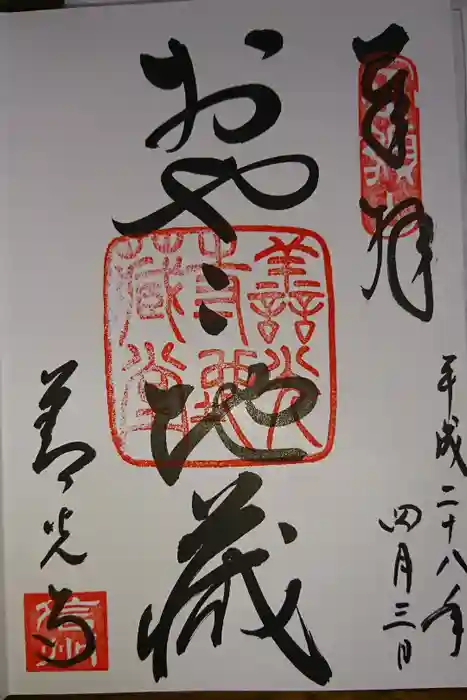 奉拝
平成二十八年
四月三日
おやこ地蔵
善光寺
藏堂
善光寺
信州